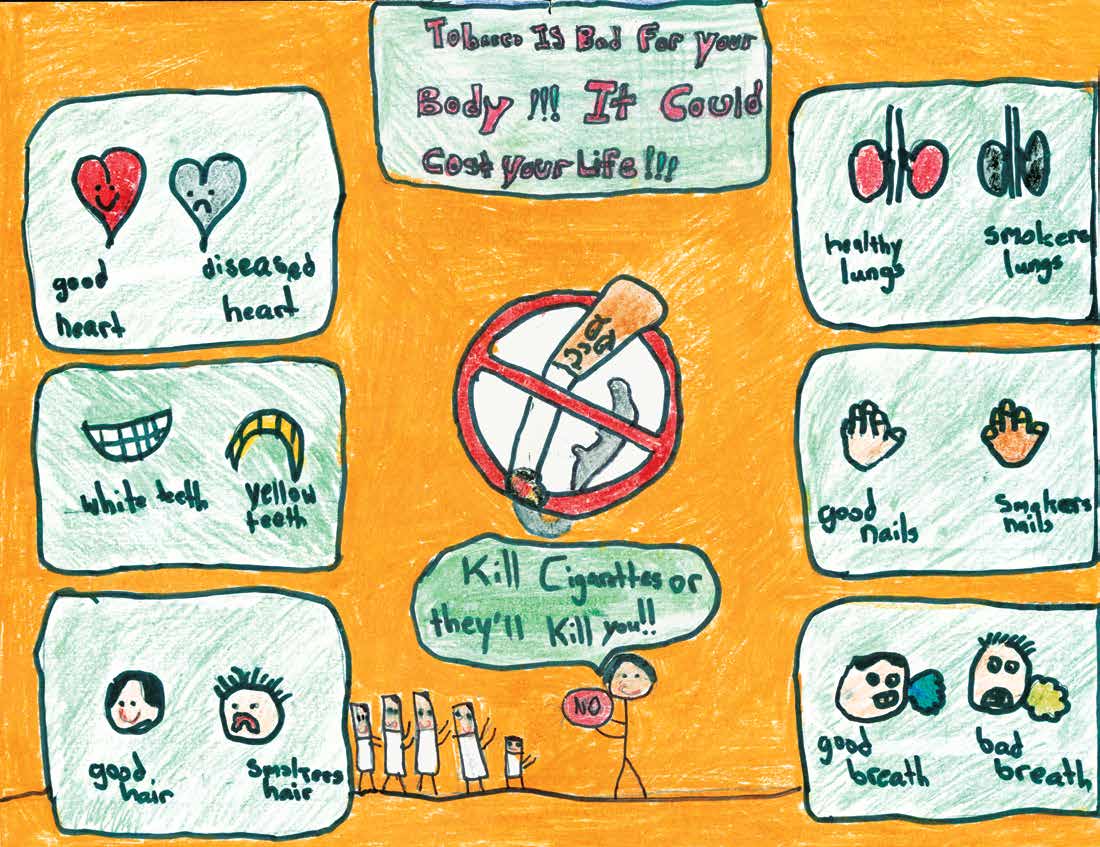 Tobacco Is Bad For your
Body !!! It Could
Cost your Life !!!
good
heart
diseased
heart
healthy
lungs
smokers
lungs
white teeth
yellow
teeth
good
nails
Smokers
nails
Kill Cigarettes or
they'll Kill you!!
NO
good
hair
Smokers
hair
good
breath
bad
breath